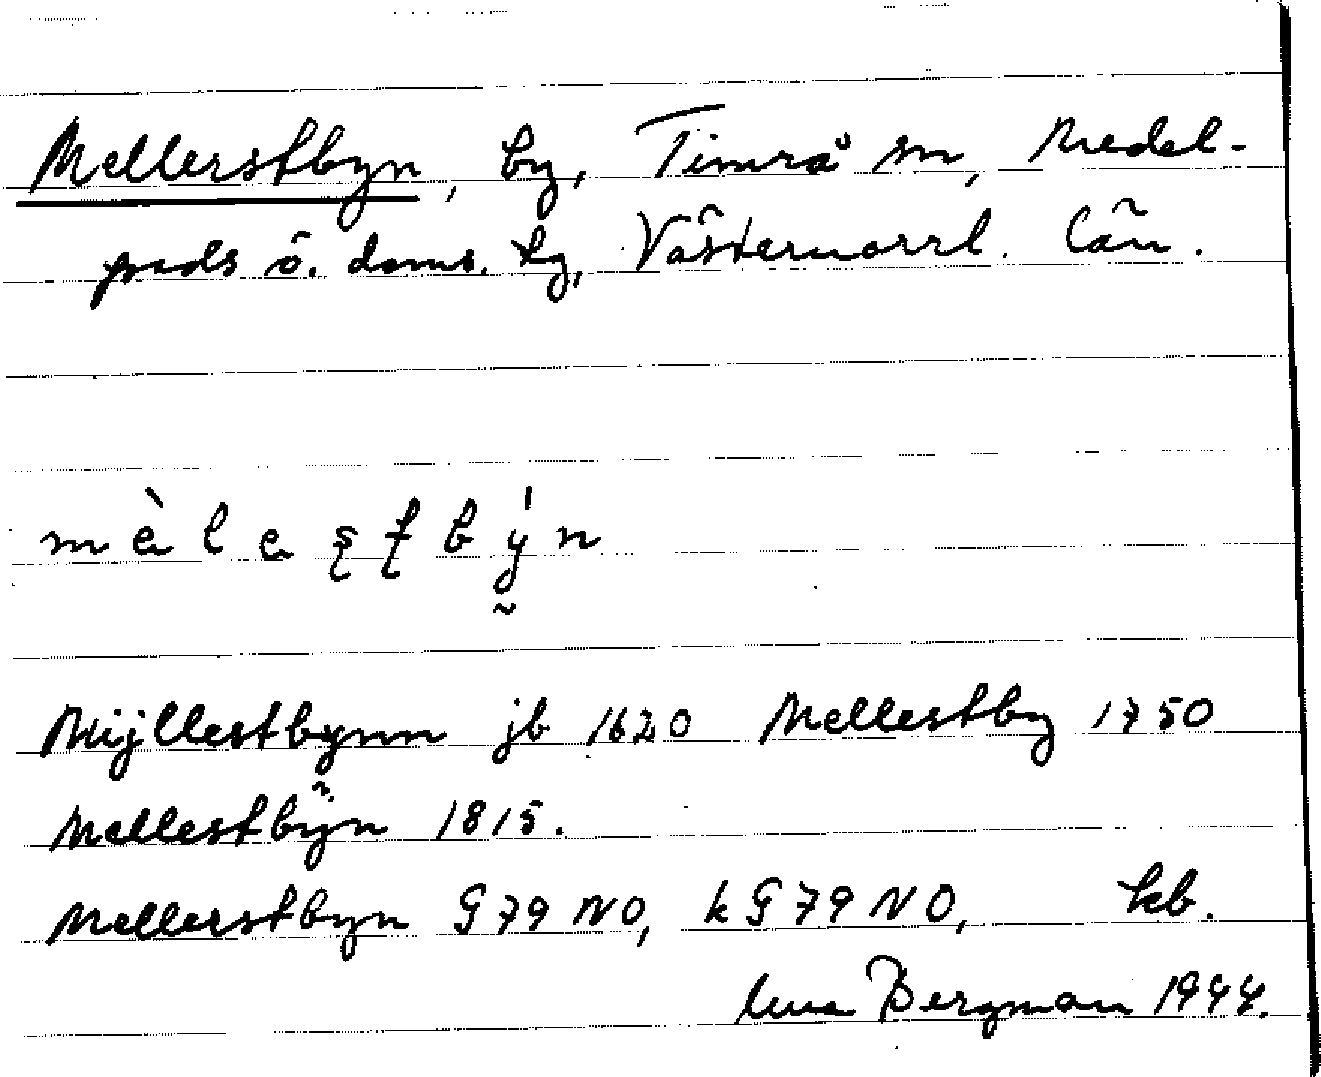 Mellerstbyn, by, Timrå sn, Medel-
pads ö. doms. tg, Västernorrl. län.
mὲlɛʂʈbýn
Mijllestbynn jb 1620 Mellestby 1750
Mellestbÿn 1815.
Mellerstbyn G79 NO, k G79 NO, kb.
Bergman 1944.